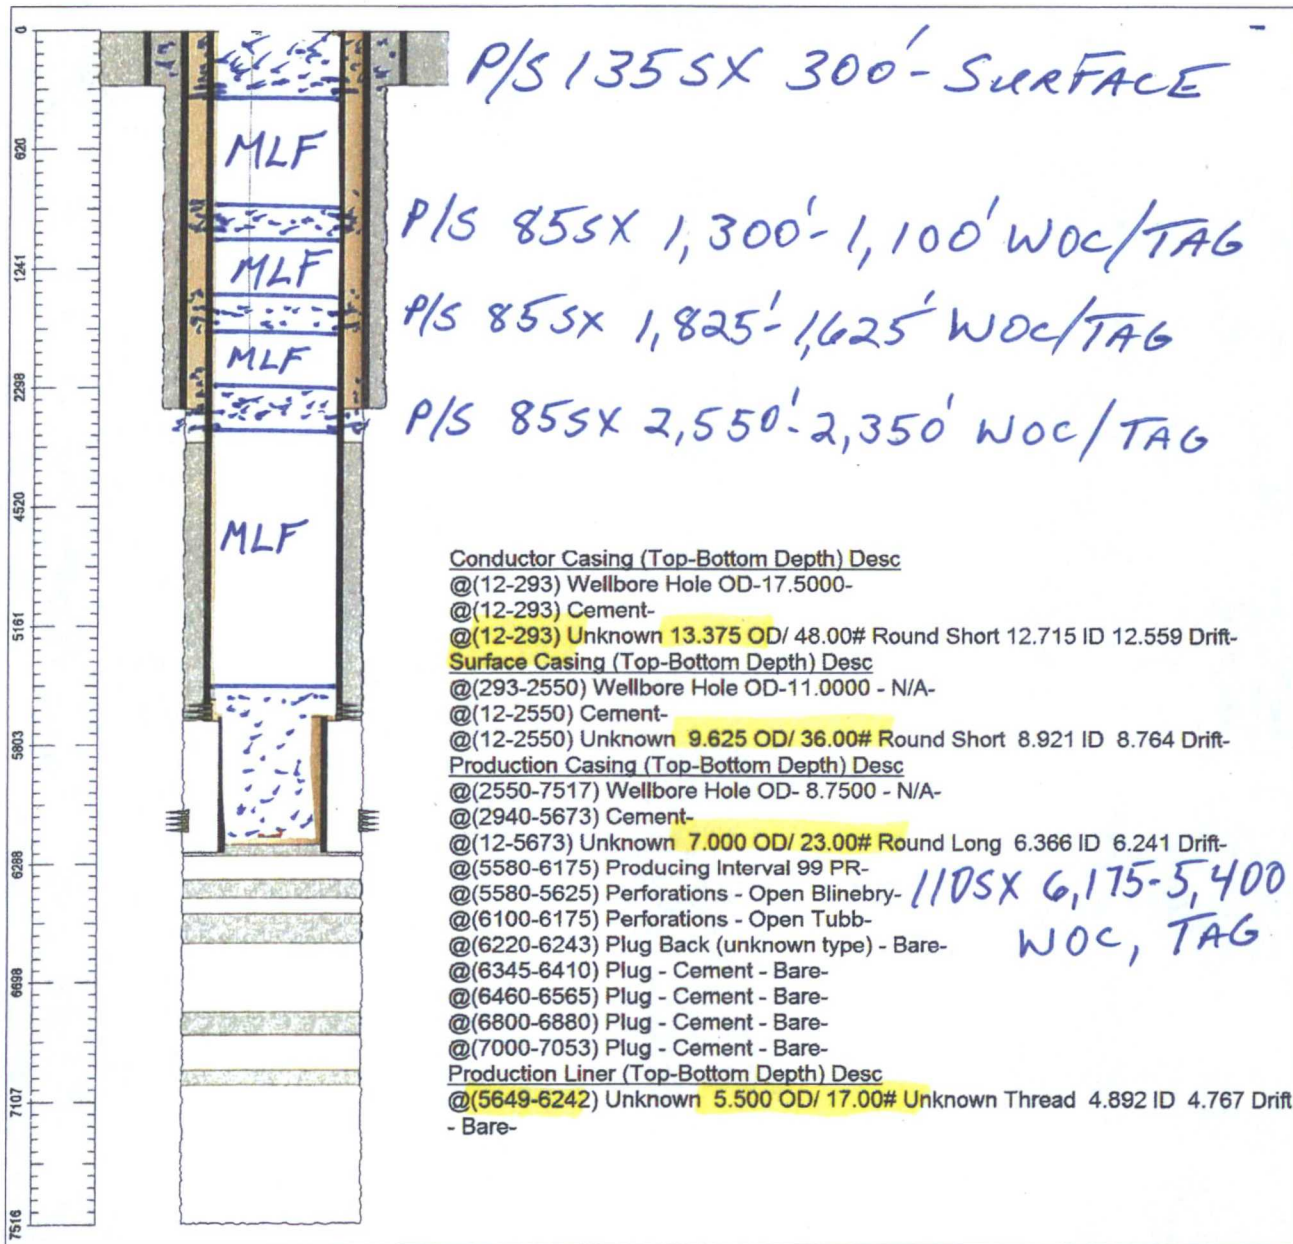 P/S 135 SX 300'- SURFACE
MLF
P/S 85SX 1,300'- 1,100' WOC/TAG
MLF
P/S 85SX 1,825'- 1,625' WOC/TAG
MLF
P/S 85SX 2,550'- 2,350' WOC/TAG
MLF
0
620
1241
2298
4520
5161
5803
6288
6698
7107
7516
Conductor Casing (Top-Bottom Depth) Desc
@(12-293) Wellbore Hole OD-17.5000-
@(12-293) Cement-
@(12-293) Unknown 13.375 OD/ 48.00# Round Short 12.715 ID 12.559 Drift-
Surface Casing (Top-Bottom Depth) Desc
@(293-2550) Wellbore Hole OD-11.0000 - N/A-
@(12-2550) Cement-
@(12-2550) Unknown 9.625 OD/ 36.00# Round Short 8.921 ID 8.764 Drift-
Production Casing (Top-Bottom Depth) Desc
@(2550-7517) Wellbore Hole OD- 8.7500 - N/A-
@(2940-5673) Cement-
@(12-5673) Unknown 7.000 OD/ 23.00# Round Long 6.366 ID 6.241 Drift-
@(5580-6175) Producing Interval 99 PR-
@(5580-5625) Perforations - Open Blinebry-
110SX 6,175-5,400
@(6100-6175) Perforations - Open Tubb-
@(6220-6243) Plug Back (unknown type) - Bare-
WOC, TAG
@(6345-6410) Plug - Cement - Bare-
@(6460-6565) Plug - Cement - Bare-
@(6800-6880) Plug - Cement - Bare-
@(7000-7053) Plug - Cement - Bare-
Production Liner (Top-Bottom Depth) Desc
@(5649-6242) Unknown 5.500 OD/ 17.00# Unknown Thread 4.892 ID 4.767 Drift
- Bare-